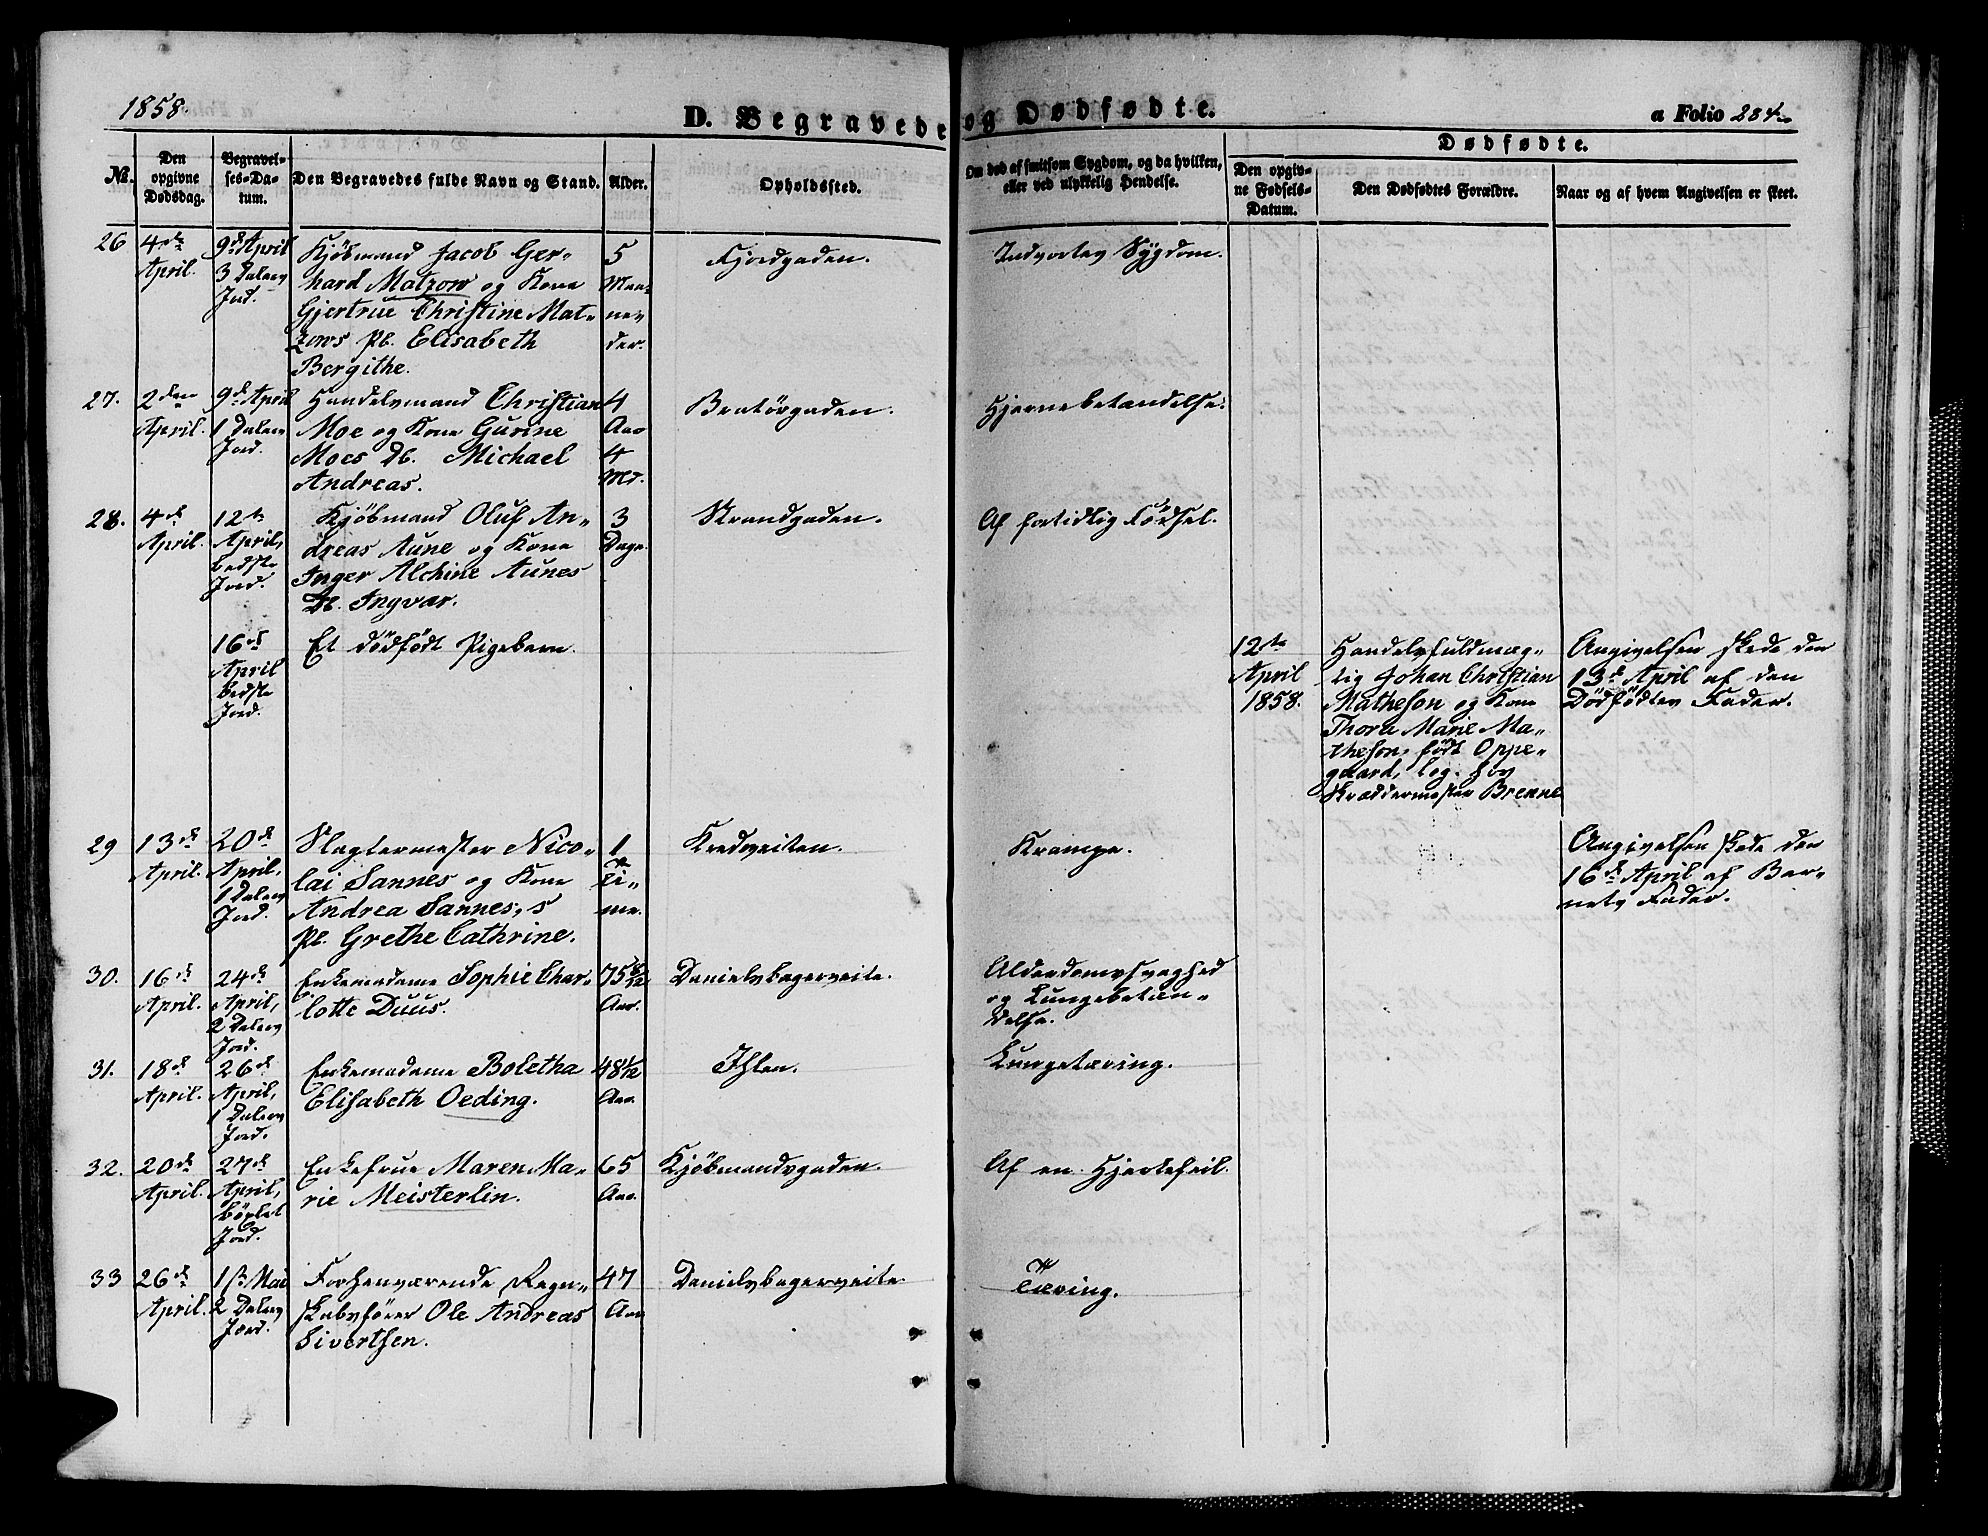 1858.
D. Begravede og Dødfødte.
a Folio 284.
No.
Den opgivne Dødsdag.
Begravelses-Datum.
Den Begravedes fulde Navn og Stand.
Alder.
Opholdssted.
Om død af smitsom Sygdom, og da hvilken,
eller ved ulykkelig Hendelse.
Dødfødte.
Den opgivne Fødsels-Datum.
Den Dødfødtes Forældre.
Naar og af hvem Angivelsen er skeet.
26 4de April. 9de April 3 Dalers Jord.
Kjöbmand Jacob Ger-
hard Matzow og Kone
Gjertrue Christine Mat-
zows Pb. Elisabeth
Bergithe.
5 Maa-
ne-
der.
Fjordgaden.
Indvortes Sygdom.
27. 2den April. 9de April 1 Dalers Jord.
Handelsmand Christian
Moe og Kone Gurine
Moes Db. Michael
Andreas.
4 Aar
4 Md.
Bratörgaden.
Hjernebetændelse.
28. 4de April. 12te April, bedste Jord.
Kjöbmand Oluf An-
dreas Aune og Kone
Inger Alchine Aunes
Db. Ingvar.
3 Dage.
Strandgaden.
Af fortidlig Födsel.
16de April bedste Jord.
Et dödfödt Pigebarn.
12te April 1858.
Handelsfuldmæg-
tig Johan Christian
Matheson og Kone
Thora Marie Ma-
theson, födt Oppe-
gaard, log. hos
Skræddermester Brenne
Angivelsen skede den
13de April af den
Dödfödtes Fader.
29 13de April. 20de April, 1 Dalers Jord.
Slagtermester Nico-
lai Sannes og Kone
Andrea Sannes, s
Pb. Grethe Cathrine.
1 Ti-
me.
Kredsveiten.
Krampe.
Angivelsen skede den
16de April af Bar-
nets Fader.
30. 16de April. 24de April, 2 Dalers Jord.
Enkemadame Sophie Char-
lotte Duus.
Aar.
Danielsbagerveite.
Alderdomssvaghed
og Lungebetæn-
delse.
31. 18de April. 26de April, 1 Dalers Jord.
Enkemadame Boletha
Elisabeth Oeding.
48 1/12 Aar.
Ihlen.
Lungetæring.
32. 20de April. 27de April, Jord.
Enkefrue Maren Ma-
rie Meisterlin.
65 Aar.
Kjöbmandsgaden.
Af en Hjertefeil.
33 26de April. 1ste Mai 2 Dalers Jord.
Forhenværende Regn-
skabsförer Ole Andreas
Sivertsen.
47 Aar
Danielsbagerveite.
Tæring.